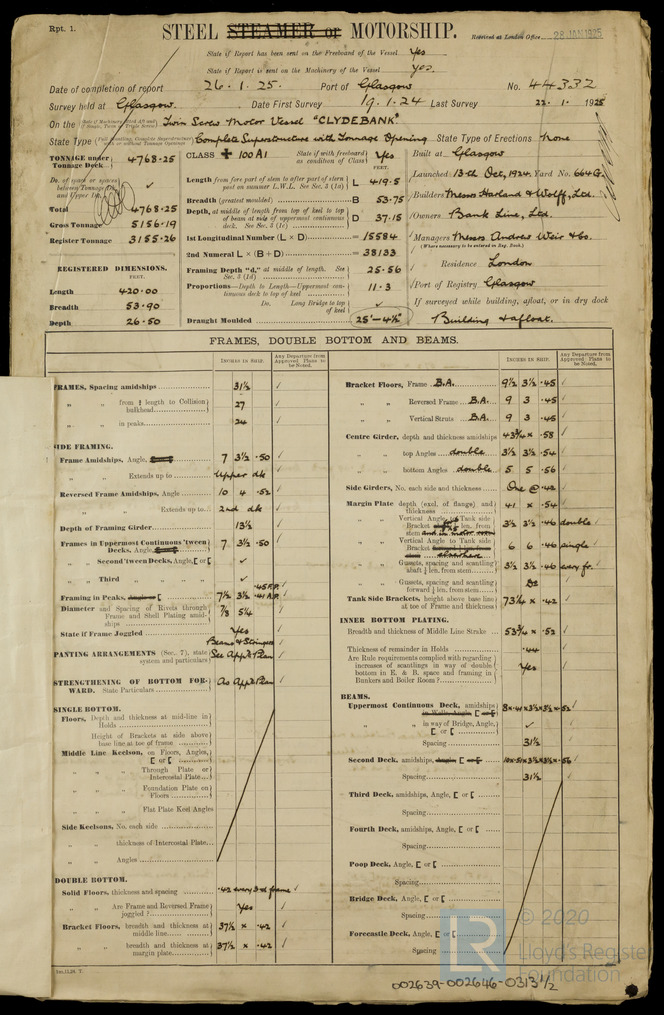 Rpt. 1.
STEEL STEAMER or MOTORSHIP.
Received at London Office 28 JAN 1925
State if Report has been sent on the Freeboard of the Vessel Yes
State if Report is sent on the Machinery of the Vessel Yes.
Date of completion of report 26.1.25. Port of Glasgow No. 44332
Survey held at Glasgow. Date First Survey 19.1.24 Last Survey 22.1.1925
On the Twin Screw Motor Vessel "CLYDEBANK"
State Type Complete Superstructure with Tonnage Opening State Type of Erections None
TONNAGE under Tonnage Deck 4768.25
Total 4768.25
Gross Tonnage 5156.19
Register Tonnage 3155.26
REGISTERED DIMENSIONS.
FEET.
Length 420.00
Breadth 53.90
Depth 26.50
CLASS ✠ 100 A1 State if with freeboard as condition of Class Yes
FEET.
Length from fore part of stem to after part of stern post on summer L.W.L. See Sec. 3 (1a) L 419.5
Breadth (greatest moulded) B 53.75
Depth, at middle of length from top of keel to top of beam at side of uppermost continuous deck. See Sec. 3 (1c) D 37.15
1st Longitudinal Number (L × D) = 15584
2nd Numeral L × (B + D) = 38133
Framing Depth "d," at middle of length. See Sec. 3 (1d) 25.56
Proportions—Depth to Length—Uppermost continuous deck to top of keel 11.3
Do. Long Bridge to top of keel ✓
Draught Moulded 25'-4½"
Built at Glasgow
Launched 13th Oct, 1924 Yard No. 664G.
Builders Messrs Harland & Wolff, Ltd.
Owners Bank Line, Ltd.
Managers Messrs Andrew Weir & Co.
(Where necessary to be entered in Reg. Book.)
Residence London
Port of Registry Glasgow
If surveyed while building, afloat, or in dry dock
Building & afloat.
FRAMES, DOUBLE BOTTOM AND BEAMS.
INCHES IN SHIP.
Any Departure from Approved Plans to be Noted.
FRAMES, Spacing amidships 31½ ✓
" " from ⅕ length to Collision bulkhead 27 ✓
" " in peaks 24 ✓
SIDE FRAMING.
Frame Amidships, Angle, 7 3½ .50 ✓
" " Extends up to Upper dk ✓
Reversed Frame Amidships, Angle 10 4 .52 ✓
" " Extends up to 2nd dk ✓
Depth of Framing Girder 13½ ✓
Frames in Uppermost Continuous 'tween Decks, Angle, 7 3½ .50 ✓
" " Second 'tween Decks, Angle, [ or [ ✓
" " Third " " ✓
Framing in Peaks, 7½ 3½ .45 F.P. .41 A.P. ✓
Diameter and Spacing of Rivets through Frame and Shell Plating amidships 7/8 5¼ ✓
State if Frame Joggled Yes ✓
PANTING ARRANGEMENTS (Sec. 7), state system and particulars Beams & Stringers See App'd Plan ✓
STRENGTHENING OF BOTTOM FORWARD. State Particulars As App'd Plan ✓
SINGLE BOTTOM.
Floors, Depth and thickness at mid-line in Holds
Height of Brackets at side above base line at toe of frame
Middle Line Keelson, on Floors, Angles, [ or [
" " Through Plate or Intercostal Plate
" " Foundation Plate on Floors
" " Flat Plate Keel Angles
Side Keelsons, No. each side
" " thickness of Intercostal Plate
" " Angles
DOUBLE BOTTOM.
Solid Floors, thickness and spacing .42 every 3rd frame ✓
" " Are Frame and Reversed Frame joggled? Yes ✓
Bracket Floors, breadth and thickness at middle line 37½ × .42 ✓
" " breadth and thickness at margin plate 37½ × .42 ✓
INCHES IN SHIP.
Any Departure from Approved Plans to be Noted.
Bracket Floors, Frame B.A. 9½ 3½ .45 ✓
" " Reversed Frame B.A. 9 3 .45 ✓
" " Vertical Struts B.A. 9 3 .45 ✓
Centre Girder, depth and thickness amidships 43¾ × .58 ✓
" " top Angles double 3½ 3½ .54 ✓
" " bottom Angles double 5 5 .56 ✓
Side Girders, No. each side and thickness One @ .42 ✓
Margin Plate depth (excl. of flange), and thickness 41 × .54 ✓
" " Vertical Angle to Tank side Bracket 3½ 3½ .46 double ✓
" " Vertical Angle to Tank side Bracket 6 6 .46 single ✓
" " Gussets, spacing and scantling abaft ¼ len. from stem 3½ 3½ .46 every fr. ✓
" " Gussets, spacing and scantling forward ¼ len. from stem Do ✓
Tank Side Brackets, height above base line at toe of Frame and thickness 73¼ × .42 ✓
INNER BOTTOM PLATING.
Breadth and thickness of Middle Line Strake 53¾ × .52 ✓
Thickness of remainder in Holds .44 ✓
Are Rule requirements complied with regarding increases of scantlings in way of double bottom in E. & B. space and framing in Bunkers and Boiler Room? Yes ✓
BEAMS.
Uppermost Continuous Deck, amidships 8×.41×3½×3½×.52 ✓
" " in way of Bridge, Angle, [ or [ ✓
Spacing 31½ ✓
Second Deck, amidships, 10×.51×3½×3½×.56 ✓
Spacing 31½ ✓
Third Deck, amidships, Angle, [ or [
Spacing
Fourth Deck, amidships, Angle, [ or [
Spacing
Poop Deck, Angle, [ or [
Spacing
Bridge Deck, Angle, [ or [
Spacing
Forecastle Deck, Angle, [ or [
Spacing
LR
© 2020
Lloyd's Register
Foundation
002639-002646-0313½